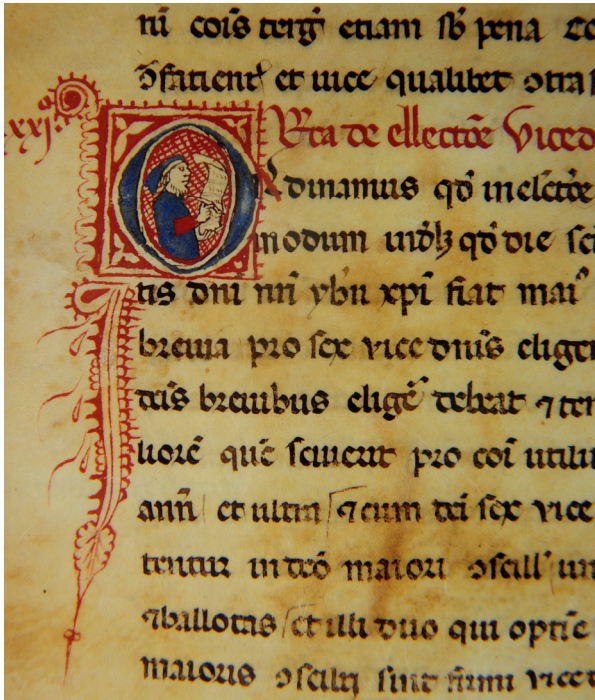 coīs etiam sb̄ pena
et uice qualibet ꝯtra
xxj
de ellectōe Viced
Ordinamus qđ in electōe
modum uidꝫ qđ die sc
tis dnī nr̄i yhu xpī fiat mai
breuia pro sex vicednīs elige
dcīs breuibus eligē debeat ⁊ ten
liorē quē sciuerit pro coī utilit
ann̄ et ultra ⁊ cum dcī sex vice
tentur in dcō maiori ꝯsill un
⁊ ballotas et illi duo qui optīe
maioris ꝯsilij sint firmi viced